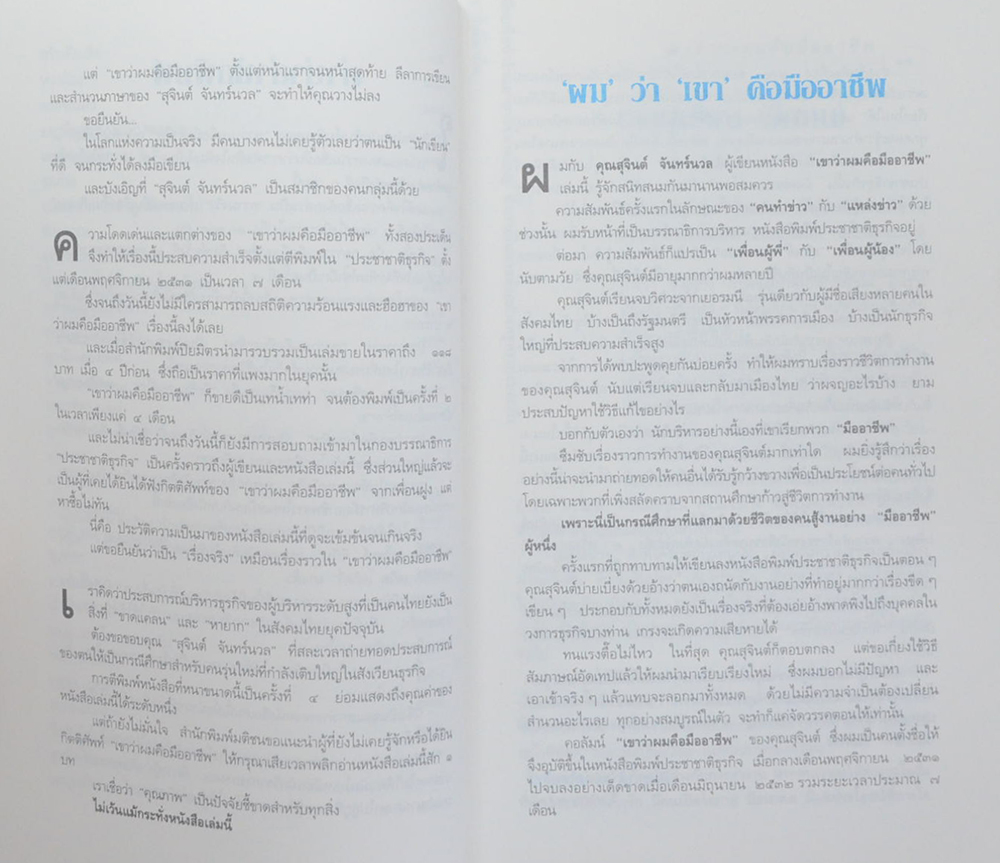 แต่ "เขาว่าผมคือมืออาชีพ" ตั้งแต่หน้าแรกจนหน้าสุดท้าย ลีลาการเขียน
และสำนวนภาษาของ "สุจินต์ จันทร์นวล" จะทำให้คุณวางไม่ลง
ขอยืนยัน...
ในโลกแห่งความเป็นจริง มีคนบางคนไม่เคยรู้ตัวเลยว่าตนเป็น "นักเขียน"
ที่ดี จนกระทั่งได้ลงมือเขียน
และบังเอิญที่ "สุจินต์ จันทร์นวล" เป็นสมาชิกของคนกลุ่มนี้ด้วย
ความโดดเด่นและแตกต่างของ "เขาว่าผมคือมืออาชีพ" ทั้งสองประเด็น
จึงทำให้เรื่องนี้ประสบความสำเร็จตั้งแต่ตีพิมพ์ใน "ประชาชาติธุรกิจ" ตั้ง
แต่เดือนพฤศจิกายน ๒๕๓๑ เป็นเวลา ๗ เดือน
ซึ่งจนถึงวันนี้ยังไม่มีใครสามารถลบสถิติความร้อนแรงและฮือฮาของ "เขา
ว่าผมคือมืออาชีพ" เรื่องนี้ลงได้เลย
และเมื่อสำนักพิมพ์ปิยมิตรนำมารวบรวมเป็นเล่มขายในราคาถึง ๑๑๘
บาท เมื่อ ๔ ปีก่อน ซึ่งถือเป็นราคาที่แพงมากในยุคนั้น
"เขาว่าผมคือมืออาชีพ" ก็ขายดีเป็นเทน้ำเทท่า จนต้องพิมพ์เป็นครั้งที่ ๒
ในเวลาเพียงแค่ ๔ เดือน
และไม่น่าเชื่อว่าจนถึงวันนี้ก็ยังมีการสอบถามเข้ามาในกองบรรณาธิการ
"ประชาชาติธุรกิจ" เป็นครั้งคราวถึงผู้เขียนและหนังสือเล่มนี้ ซึ่งส่วนใหญ่แล้วจะ
เป็นผู้ที่เคยได้ยินได้ฟังกิตติศัพท์ของ "เขาว่าผมคือมืออาชีพ" จากเพื่อนฝูง แต่
หาซื้อไม่ทัน
นี่คือ ประวัติความเป็นมาของหนังสือเล่มนี้ที่ดูจะเข้มข้นจนเกินจริง
แต่ขอยืนยันว่าเป็น "เรื่องจริง" เหมือนเรื่องราวใน "เขาว่าผมคือมืออาชีพ"
เราคิดว่าประสบการณ์บริหารธุรกิจของผู้บริหารระดับสูงที่เป็นคนไทยยังเป็น
สิ่งที่ "ขาดแคลน" และ "หายาก" ในสังคมไทยยุคปัจจุบัน
ต้องขอขอบคุณ "สุจินต์ จันทร์นวล" ที่สละเวลาถ่ายทอดประสบการณ์
ของตนให้เป็นกรณีศึกษาสำหรับคนรุ่นใหม่ที่กำลังเติบใหญ่ในสังเวียนธุรกิจ
การตีพิมพ์หนังสือที่หนาขนาดนี้เป็นครั้งที่ ๔ ย่อมแสดงถึงคุณค่าของ
หนังสือเล่มนี้ได้ระดับหนึ่ง
แต่ถ้ายังไม่มั่นใจ สำนักพิมพ์มติชนขอแนะนำผู้ที่ยังไม่เคยรู้จักหรือได้ยิน
กิตติศัพท์ "เขาว่าผมคือมืออาชีพ" ให้กรุณาเสียเวลาพลิกอ่านหนังสือเล่มนี้สัก ๑
บท
เราเชื่อว่า "คุณภาพ" เป็นปัจจัยชี้ขาดสำหรับทุกสิ่ง
ไม่เว้นแม้กระทั่งหนังสือเล่มนี้
'ผม' ว่า 'เขา' คือมืออาชีพ
ผมกับ คุณสุจินต์ จันทร์นวล ผู้เขียนหนังสือ "เขาว่าผมคือมืออาชีพ"
เล่มนี้ รู้จักสนิทสนมกันมานานพอสมควร
ความสัมพันธ์ครั้งแรกในลักษณะของ "คนทำข่าว" กับ "แหล่งข่าว" ด้วย
ช่วงนั้น ผมรับหน้าที่เป็นบรรณาธิการบริหาร หนังสือพิมพ์ประชาชาติธุรกิจอยู่
ต่อมา ความสัมพันธ์ก็แปรเป็น "เพื่อนผู้พี่" กับ "เพื่อนผู้น้อง" โดย
นับตามวัย ซึ่งคุณสุจินต์มีอายุมากกว่าผมหลายปี
คุณสุจินต์เรียนจบวิศวะจากเยอรมนี รุ่นเดียวกับผู้มีชื่อเสียงหลายคนใน
สังคมไทย บ้างเป็นถึงรัฐมนตรี เป็นหัวหน้าพรรคการเมือง บ้างเป็นนักธุรกิจ
ใหญ่ที่ประสบความสำเร็จสูง
จากการได้พบปะพูดคุยกันบ่อยครั้ง ทำให้ผมทราบเรื่องราวชีวิตการทำงาน
ของคุณสุจินต์ นับแต่เรียนจบและกลับมาเมืองไทย ว่าผจญอะไรบ้าง ยาม
ประสบปัญหาใช้วิธีแก้ไขอย่างไร
บอกกับตัวเองว่า นักบริหารอย่างนี้เองที่เขาเรียกพวก "มืออาชีพ"
ซึมซับเรื่องราวการทำงานของคุณสุจินต์มากเท่าใด ผมยิ่งรู้สึกว่าเรื่อง
อย่างนี้น่าจะนำมาถ่ายทอดให้คนอื่นได้รับรู้กว้างขวางเพื่อเป็นประโยชน์ต่อคนทั่วไป
โดยเฉพาะพวกที่เพิ่งสลัดคราบจากสถานศึกษาก้าวสู่ชีวิตการทำงาน
เพราะนี่เป็นกรณีศึกษาที่แลกมาด้วยชีวิตของคนสู้งานอย่าง "มืออาชีพ"
ผู้หนึ่ง
ครั้งแรกที่ถูกทาบทามให้เขียนลงหนังสือพิมพ์ประชาชาติธุรกิจเป็นตอน ๆ
คุณสุจินต์บ่ายเบี่ยงด้วยอ้างว่าตนเองถนัดกับงานอย่างที่ทำอยู่มากกว่าเรื่องขีด ๆ
เขียน ๆ ประกอบกับทั้งหมดยังเป็นเรื่องจริงที่ต้องเอ่ยอ้างพาดพิงไปถึงบุคคลใน
วงการธุรกิจบางท่าน เกรงจะเกิดความเสียหายได้
ทนแรงตื๊อไม่ไหว ในที่สุด คุณสุจินต์ก็ตอบตกลง แต่ขอเกี่ยงใช้วิธี
สัมภาษณ์อัดเทปแล้วให้ผมนำมาเรียบเรียงใหม่ ซึ่งผมบอกไม่มีปัญหา และ
เอาเข้าจริง ๆ แล้วแทบจะลอกมาทั้งหมด ด้วยไม่มีความจำเป็นต้องเปลี่ยน
สำนวนอะไรเลย ทุกอย่างสมบูรณ์ในตัว จะทำก็แค่จัดวรรคตอนให้เท่านั้น
คอลัมน์ "เขาว่าผมคือมืออาชีพ" ของคุณสุจินต์ ซึ่งผมเป็นคนตั้งชื่อให้
จึงอุบัติขึ้นในหนังสือพิมพ์ประชาชาติธุรกิจ เมื่อกลางเดือนพฤศจิกายน ๒๕๓๑
ไปจบลงอย่างเด็ดขาดเมื่อเดือนมิถุนายน ๒๕๓๒ รวมระยะเวลาประมาณ ๗
เดือน